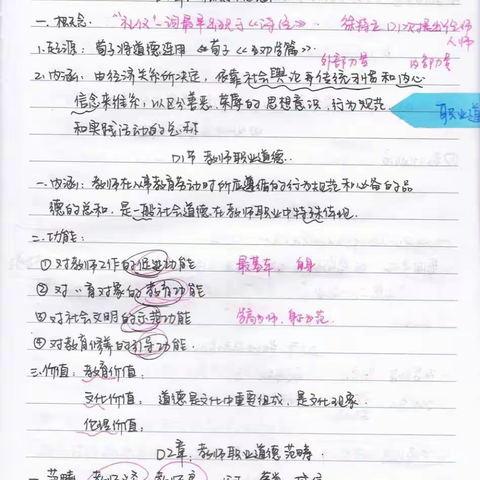 一. 概念: "礼仪"一词最早出现于《诗经》. 徐特立 D1次提出经师
人师
1. 起源: 荀子将道德连用 《荀子《劝学篇》.
外部力量 内部力量
2. 内涵: 由经济关系所决定, 依靠社会舆论、传统习俗和内心
信念来维系, 以区分善恶、荣辱的思想意识, 行为规范
和实践活动的总称
职业道
D1节 教师职业道德.
一. 内涵: 教师在从事教育劳动时所应遵循的行为规范和必备的品
德的总和, 是一般社会道德在教师职业中特殊体现.
二. 功能:
① 对教师工作的促进功能 最基本、自身
② 对教育对象的教育功能
③ 对社会文明的示范功能 学高为师, 身正为范.
④ 对教育修养的引导功能.
三. 价值: 教育价值;
文化价值; 道德是文化中重要组成, 是文化现象.
伦理价值;
D2章: 教师职业道德范畴.
一. 范畴